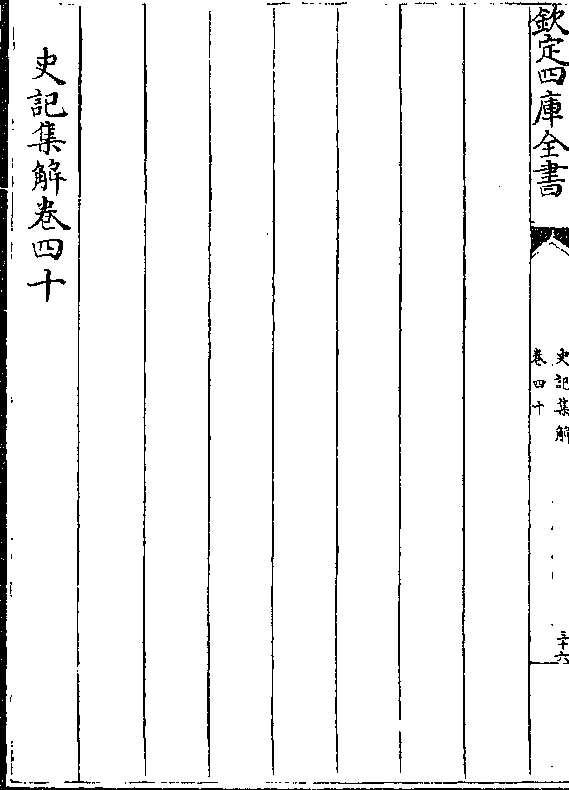 欽定四庫全書
史記集解
卷四十
三十六
史記集解卷四十